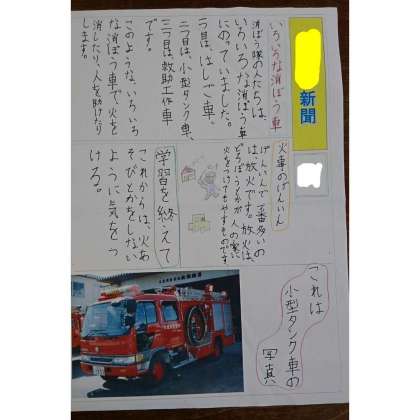 新聞
いろいろな消ぼう車
消ぼう隊の人たちは、
いろいろな消ぼう車
にのっていました。
一つ目は、はしご車。
二つ目は、小型タンク車、
三つ目は、救助工作車
です。
このような、いろいろ
な消ぼう車で、火を
消したり、人を助けたり
します。
火事のげんいん
げんいんで一番多いの
は放火です。放火は、
どろぼうとかが人の家に
火をつけてもやすものです。
学習を終えて
これからは、火あ
そびとかをしない
ように気をつ
ける。
これは
小型タンク車の
写真